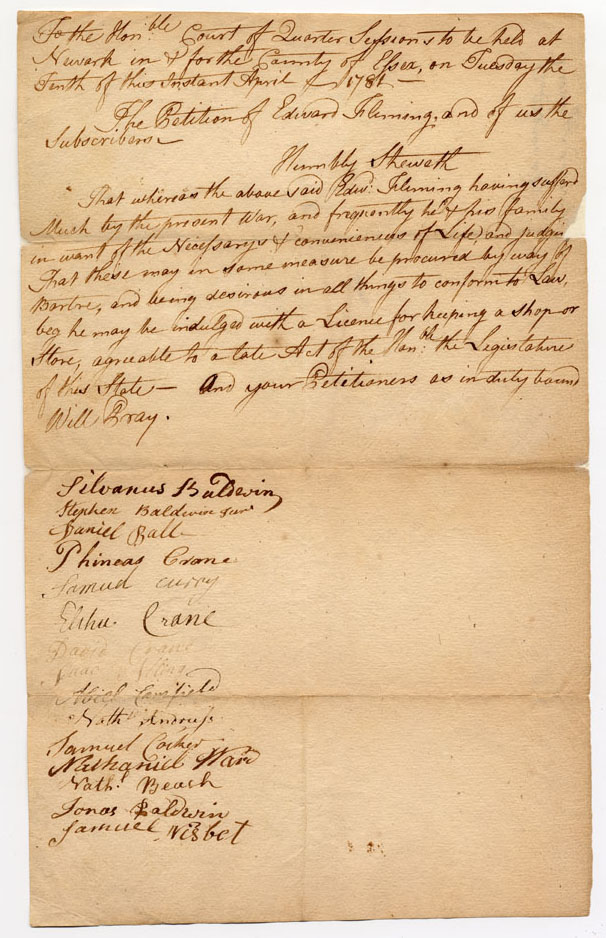 To the Hon.ble Court of Quarter Sessions to be held at
Newark in & for the County of Essex, on Tuesday the
Tenth of this Instant April 1781 —
The Petition of Edward Fleming, and of us the
Subscribers —
Humbly Sheweth
That whereas the above said Edwd. Fleming having suffered
Much by the present War, and frequently he & his family
in want of the Necessarys & conveniences of Life, and judging
That these may in some measure be procured by way of
Bartre, and being desirous in all things to conform to Law,
beg he may be indulged with a Licence for keeping a shop or
Store, agreable to a late Act of the Hon.ble the Legislature
of this State — And your Petitioners as in duty bound
Will Pray.
Silvanus Baldwin
Stephen Baldwin Junr
Daniel Ball
Phineas Crane
Samuel Curry
Elihu Crane
David Crane
Isaac
Abiel Camfield
Nathl Andruss
Samuel Cocker
Nathaniel Ward
Nathl. Beach
Jonas Baldwin
Samuel Nisbet